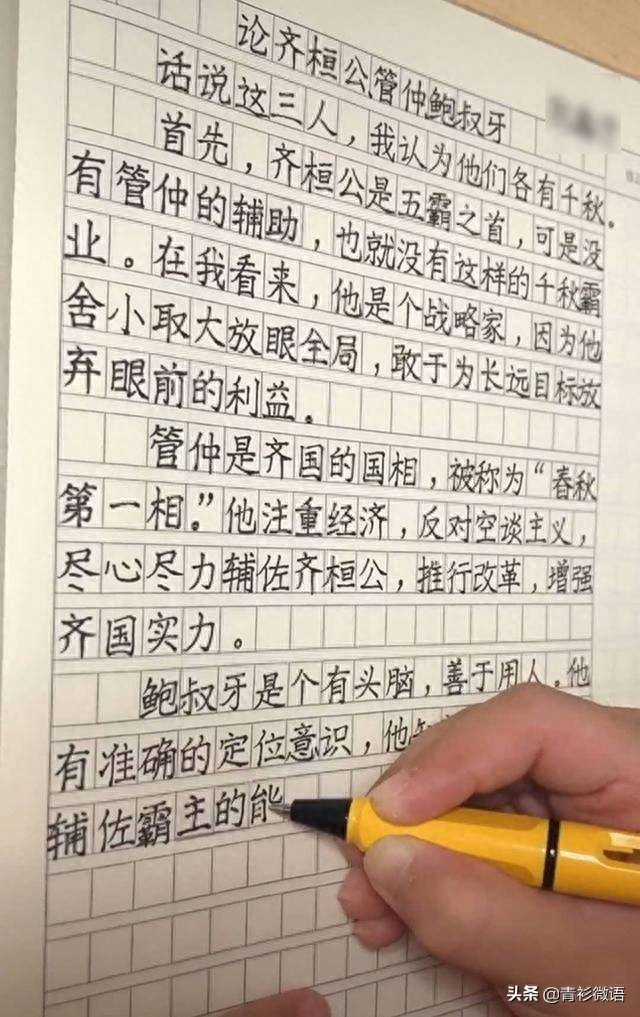 论齐桓公管仲鲍叔牙
话说这三人，我认为他们各有千秋。
首先，齐桓公是五霸之首，可是没
有管仲的辅助，也就没有这样的千秋霸
业。在我看来，他是个战略家，因为他
舍小取大放眼全局，敢于为长远目标放
弃眼前的利益。
管仲是齐国的国相，被称为“春秋
第一相。”他注重经济，反对空谈主义，
尽心尽力辅佐齐桓公，推行改革，增强
齐国实力。
鲍叔牙是个有头脑，善于用人。他
有准确的定位意识，他
辅佐霸主的能
头条 @青衫微语